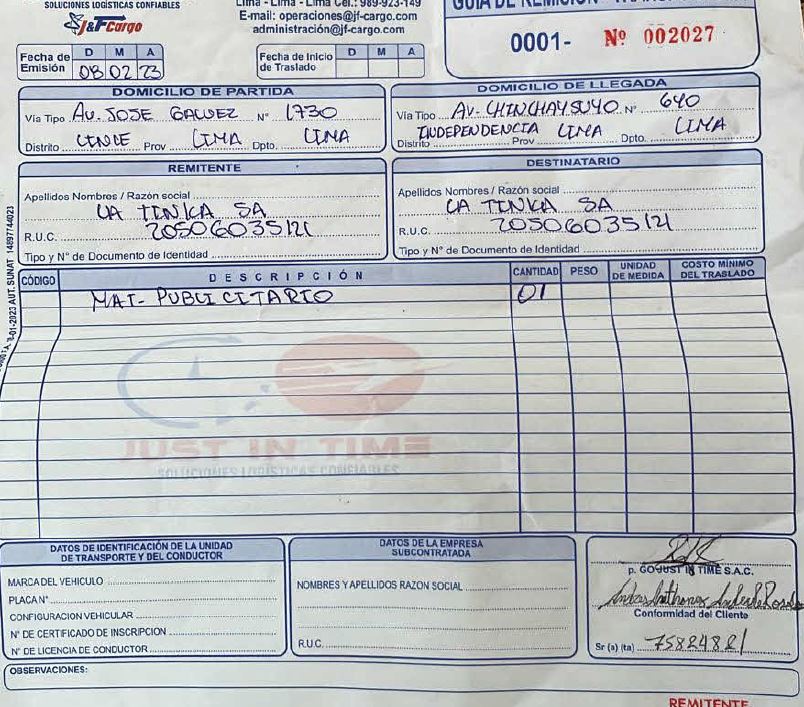 SOLUCIONES LOGÍSTICAS CONFIABLES
J&F Cargo
Lima - Lima - Lima Cel.: 989-923-149
E-mail: operaciones@jf-cargo.com
administración@jf-cargo.com
GUÍA DE REMISIÓN
0001- Nº 002027
Fecha de Emisión D M A
08 02 23
Fecha de Inicio de Traslado D M A
DOMICILIO DE PARTIDA
Vía Tipo AV. JOSE GALVEZ N° 1730
Distrito LINCE Prov LIMA Dpto. LIMA
DOMICILIO DE LLEGADA
Vía Tipo AV. CHINCHAYSUYO N° 640
Distrito INDEPENDENCIA Prov LIMA Dpto. LIMA
REMITENTE
Apellidos Nombres / Razón social
LA TINKA SA
R.U.C. 20506035121
Tipo y N° de Documento de Identidad
DESTINATARIO
Apellidos Nombres / Razón social
LA TINKA SA
R.U.C. 20506035121
Tipo y N° de Documento de Identidad
CÓDIGO DESCRIPCIÓN CANTIDAD PESO UNIDAD DE MEDIDA COSTO MÍNIMO DEL TRASLADO
MAT- PUBLICITARIO 01
JUST IN TIME
SOLUCIONES LOGÍSTICAS CONFIABLES
-01-2023 AUT. SUNAT 14897744023
DATOS DE IDENTIFICACIÓN DE LA UNIDAD
DE TRANSPORTE Y DEL CONDUCTOR
MARCA DEL VEHICULO
PLACA N°
CONFIGURACION VEHICULAR
N° DE CERTIFICADO DE INSCRIPCION
N° DE LICENCIA DE CONDUCTOR
DATOS DE LA EMPRESA
SUBCONTRATADA
NOMBRES Y APELLIDOS RAZON SOCIAL
R.U.C.
p. GO JUST IN TIME S.A.C.
Conformidad del Cliente
Sr (a) (ta) 75824821
OBSERVACIONES:
REMITENTE